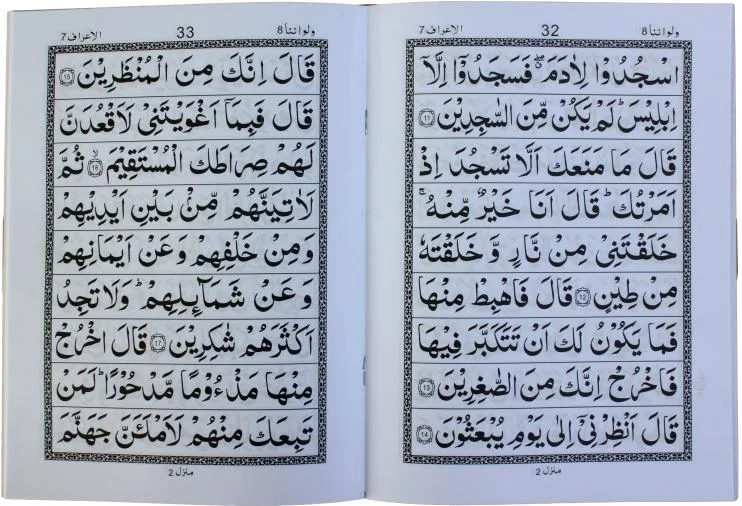 ولو اننا 8 32 الاعراف 7
اسْجُدُوْا لِاٰدَمَ ۖ فَسَجَدُوْۤا اِلَّاۤ
اِبْلِيْسَ ؕ لَمْ يَكُنْ مِّنَ السّٰجِدِيْنَ 11
قَالَ مَا مَنَعَكَ اَلَّا تَسْجُدَ اِذْ
اَمَرْتُكَ ؕ قَالَ اَنَا خَيْرٌ مِّنْهُ ۚ
خَلَقْتَنِيْ مِنْ نَّارٍ وَّ خَلَقْتَهٗ
مِنْ طِيْنٍ 12 قَالَ فَاهْبِطْ مِنْهَا
فَمَا يَكُوْنُ لَكَ اَنْ تَتَكَبَّرَ فِيْهَا
فَاخْرُجْ اِنَّكَ مِنَ الصّٰغِرِيْنَ 13
قَالَ اَنْظِرْنِيْۤ اِلٰى يَوْمِ يُبْعَثُوْنَ 14
منزل 2
ولو اننا 8 33 الاعراف 7
قَالَ اِنَّكَ مِنَ الْمُنْظَرِيْنَ 15
قَالَ فَبِمَاۤ اَغْوَيْتَنِيْ لَاَقْعُدَنَّ
لَهُمْ صِرَاطَكَ الْمُسْتَقِيْمَ 16 ۙ ثُمَّ
لَاٰتِيَنَّهُمْ مِّنْۢ بَيْنِ اَيْدِيْهِمْ
وَمِنْ خَلْفِهِمْ وَعَنْ اَيْمَانِهِمْ
وَعَنْ شَمَآئِلِهِمْ ؕ وَلَا تَجِدُ
اَكْثَرَهُمْ شٰكِرِيْنَ 17 قَالَ اخْرُجْ
مِنْهَا مَذْءُوْمًا مَّدْحُوْرًا ؕ لَمَنْ
تَبِعَكَ مِنْهُمْ لَاَمْلَـَٔنَّ جَهَنَّمَ
منزل 2